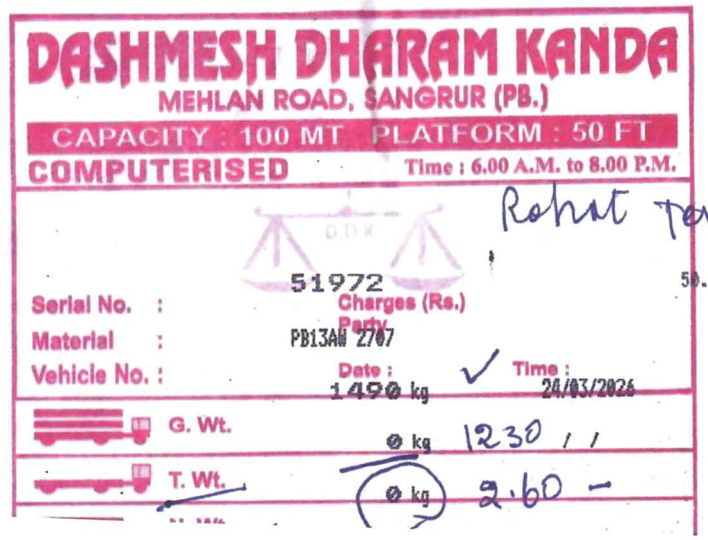 DASHMESH DHARAM KANDA
MEHLAN ROAD, SANGRUR (PB.)
CAPACITY : 100 MT PLATFORM : 50 FT
COMPUTERISED Time : 6.00 A.M. to 8.00 P.M.
D.D.K
51972 50.
Serial No. : Charges (Rs.)
Material : Party
PB13AW 2707
Vehicle No. : Date : Time :
1490 kg 24/03/2026
G. Wt.
0 kg 1230 / /
T. Wt.
0 kg 2.60 -